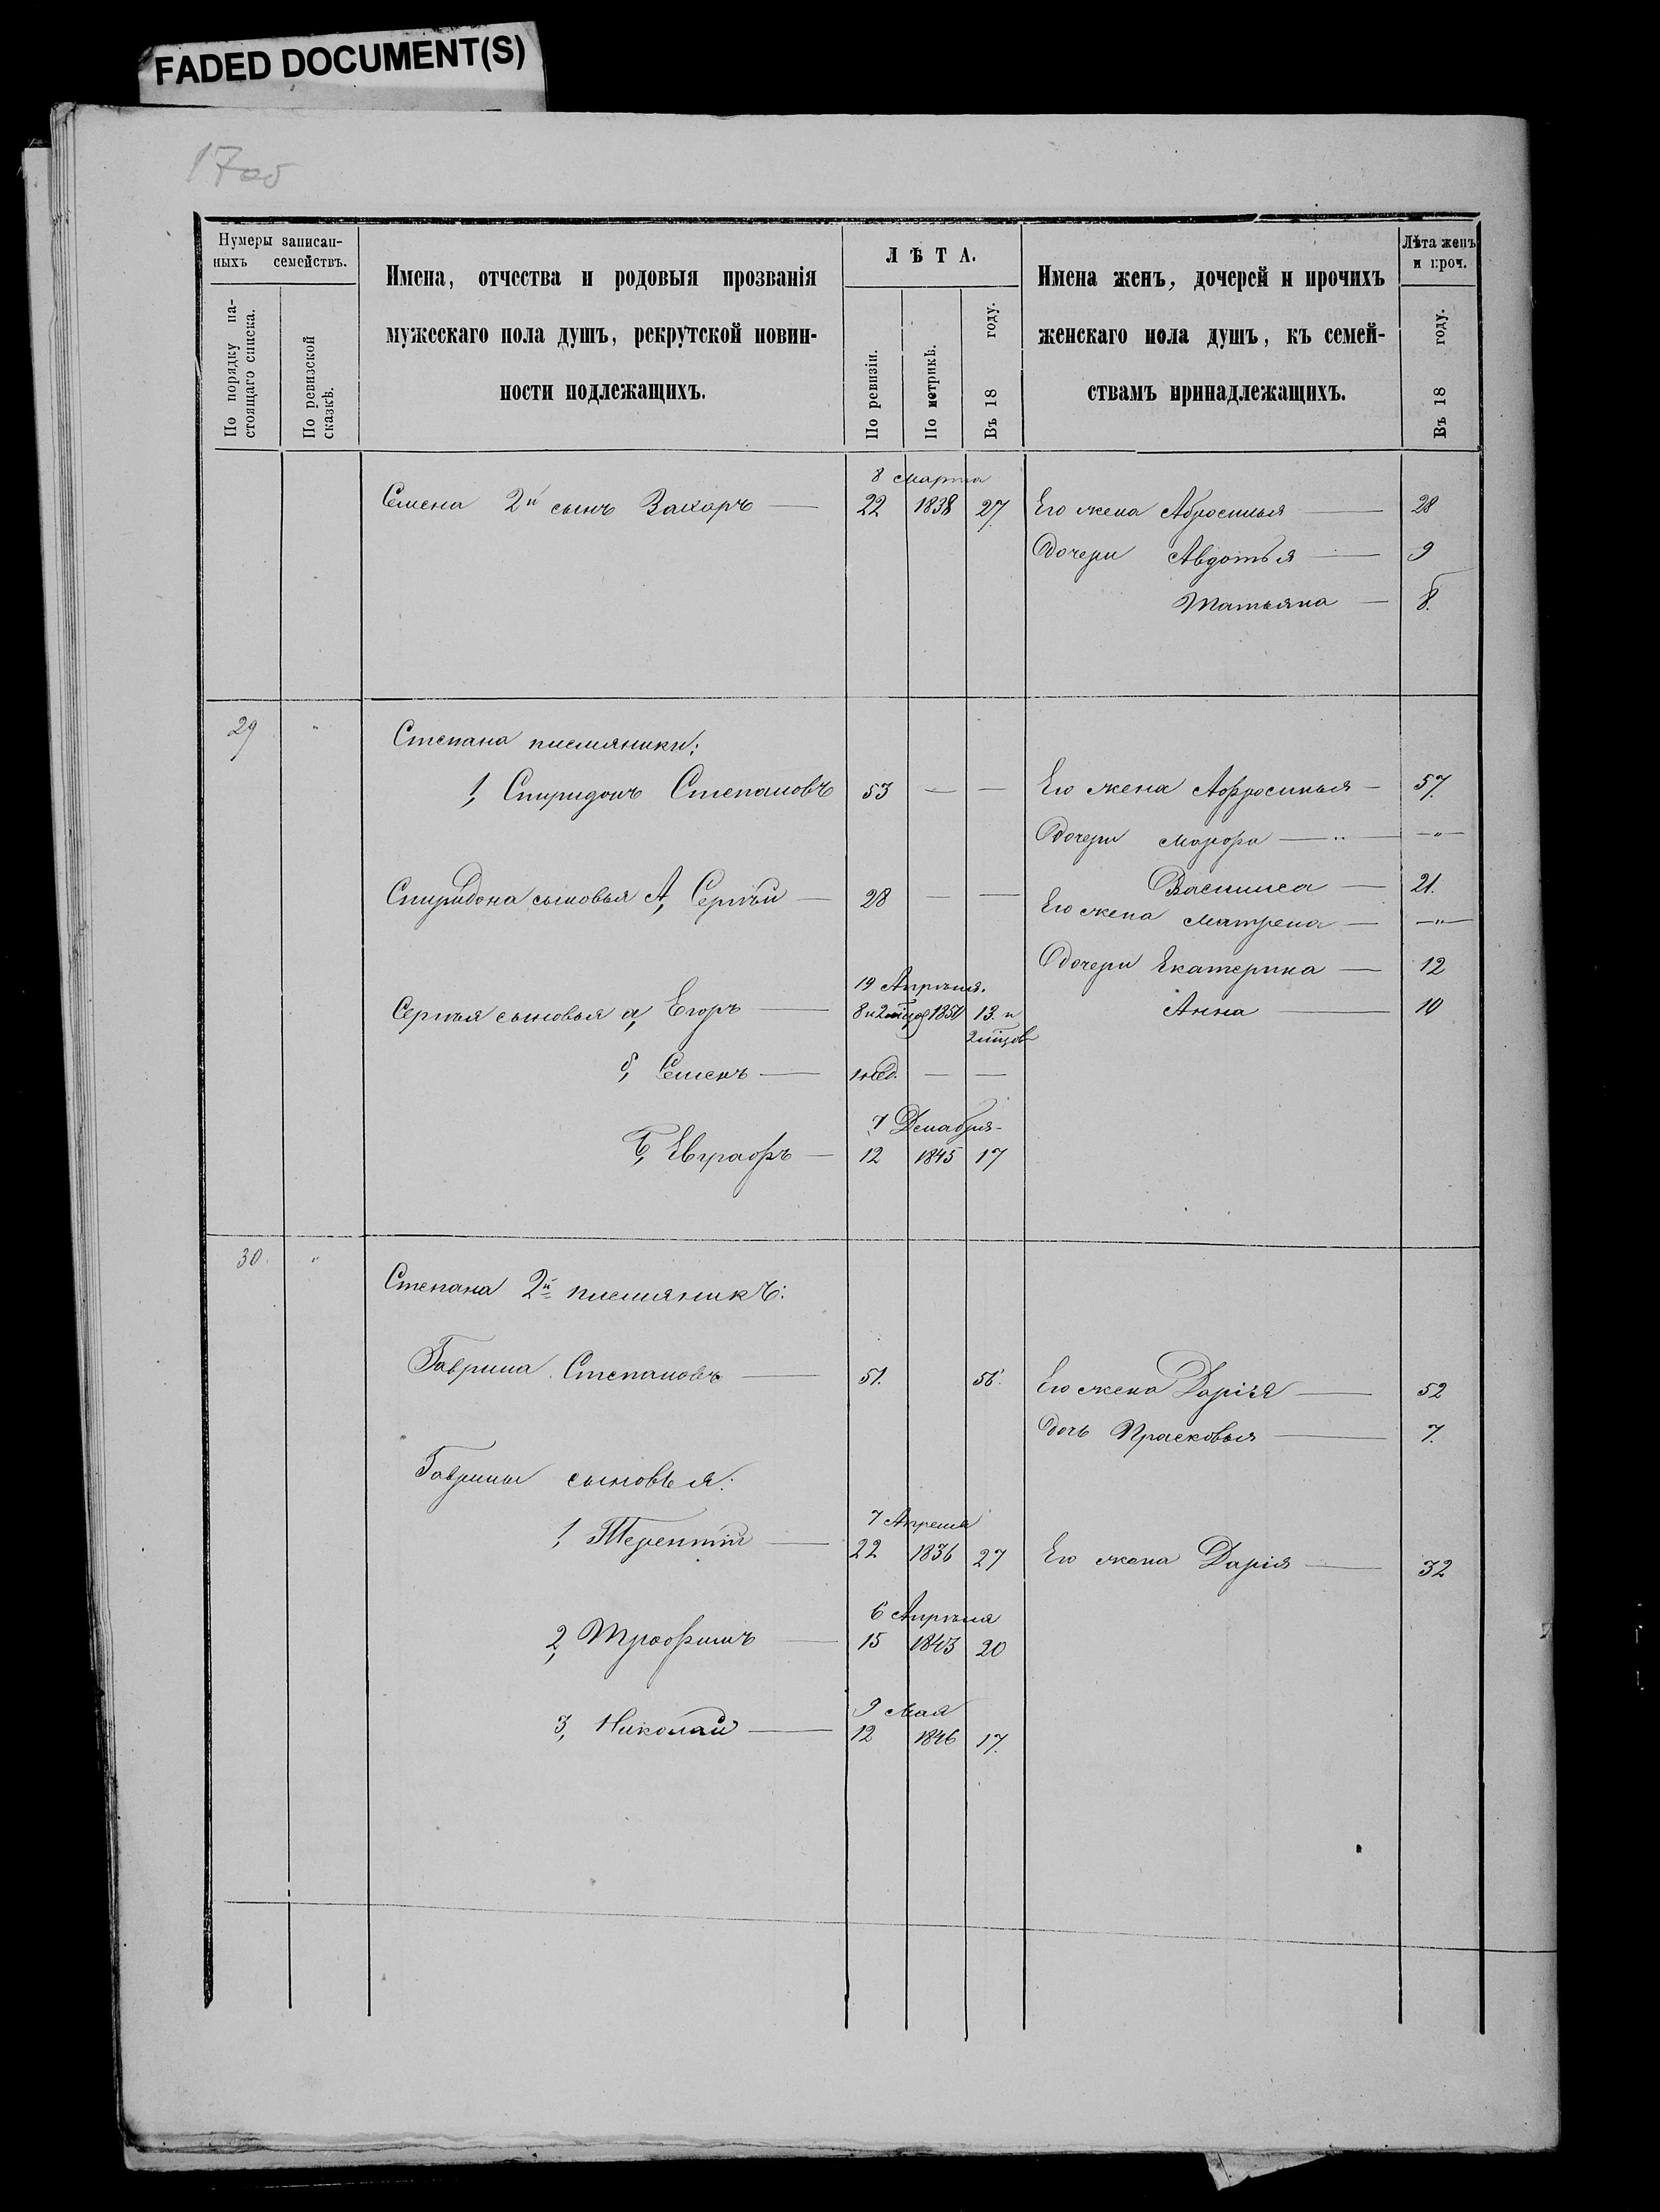 FADED DOCUMENT(S)
17об
Нумеры записан-
ныхъ семействъ.
По порядку на-
стоящаго списка.
По ревизской
сказкѣ.
Имена, отчества и родовыя прозванія
мужескаго пола душъ, рекрутской повин-
ности подлежащихъ.
ЛѢТА.
По ревизіи.
По метрикѣ.
Въ 18 году.
Имена женъ, дочерей и прочихъ
женскаго пола душъ, къ семей-
ствамъ принадлежащихъ.
Лѣта женъ
и проч.
Въ 18 году.
8 Марта
Семена 2й сынъ Захаръ — 22 1838 27 Его жена Афросинья — 28
Дочери Авдотья — 9
Татьяна — 8.
29 "
Степана племяники:
1, Спиридонъ Степановъ 53 — — Его жена Афросинья — 57.
Дочери Марфа — " — — " —
Василиса — 21.
Спиридона сыновья А, Сергѣй — 28 — — Его жена Матрена — — " —
Дочери Екатерина — 12
19 Апрѣля.
Сергѣя сыновья а, Егоръ — 8 и 2 мѣцов 1850 13. и Анна — 10
2 мѣцов
б, Семенъ — 1 нед. — —
7 Декабря
Б, Евграфъ — 12 1845 17
30. "
Степана 2й племяникъ:
Гаврила Степановъ — 51. 56. Его жена Дарія — 52
Дочь Прасковья — 7.
Гаврилы сыновья:
7 Апреля
1, Терентій — 22 1836 27 Его жена Дарія — 32
6 Апрѣля
2, Трофимъ — 15 1843 20
9 Мая
3, Николай — 12 1846 17.